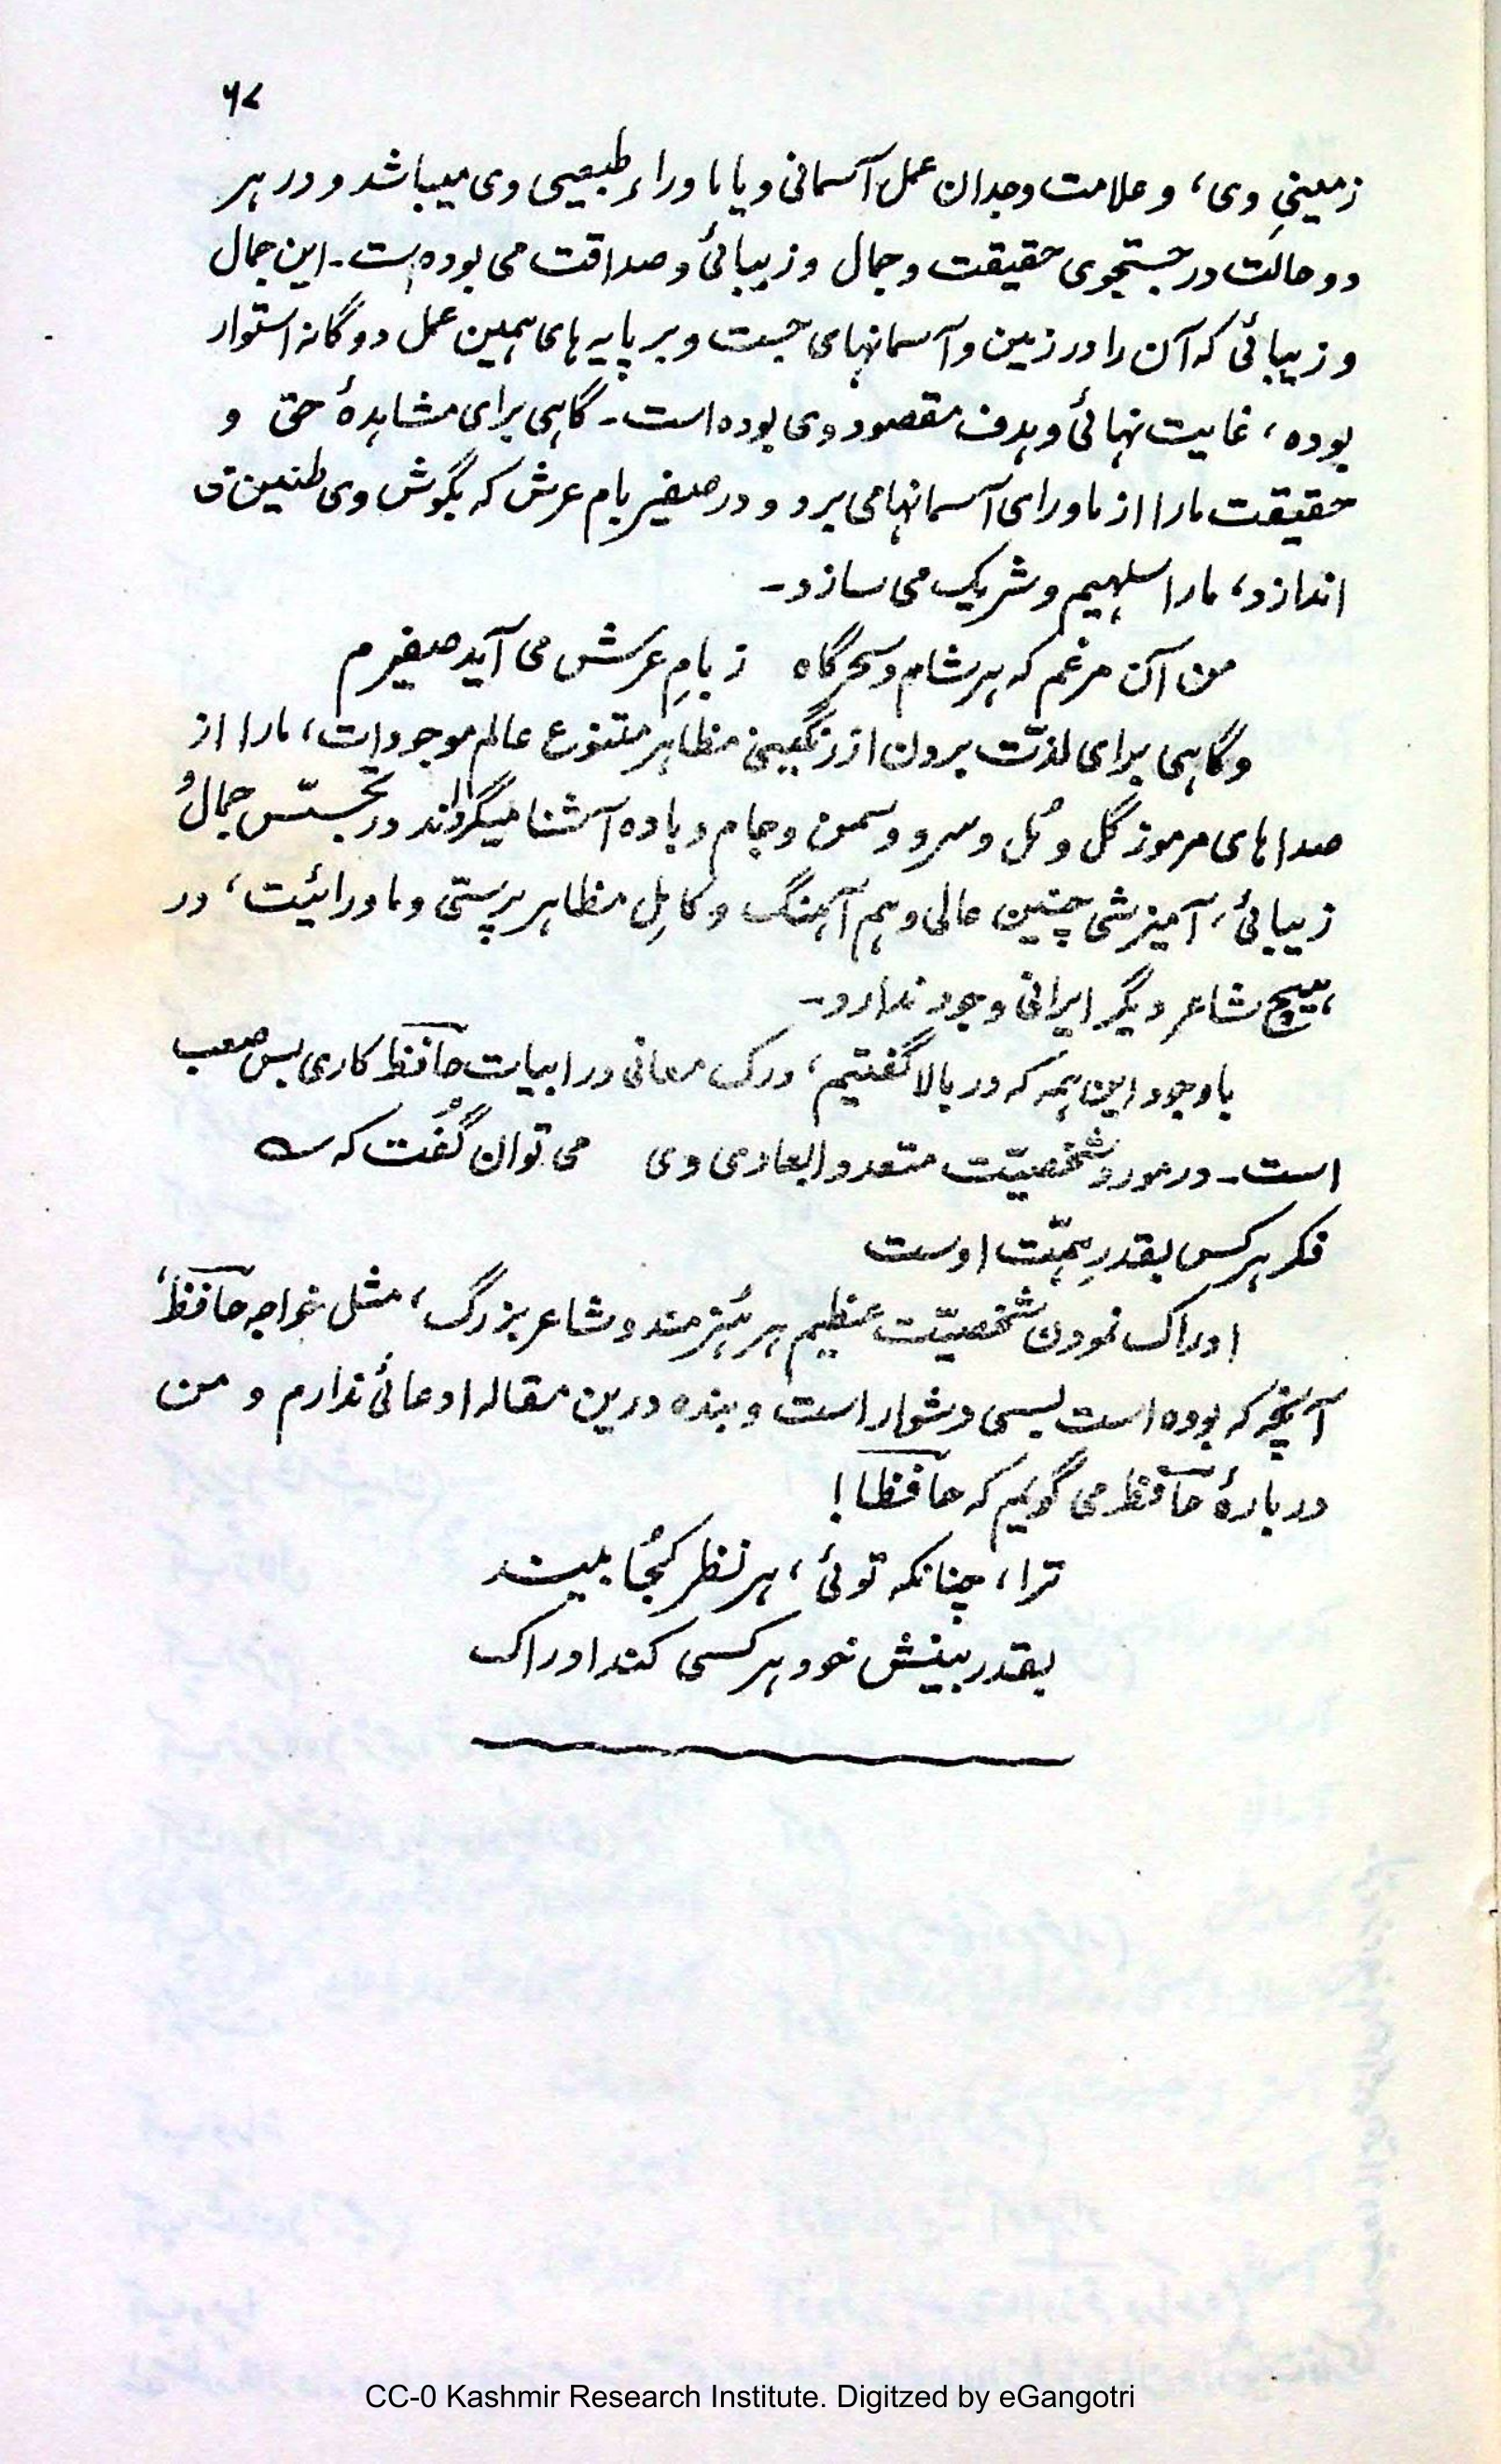 ۶۷
زمینیِ وی، و علامت وجدان عمل آسمانی و یا ماوراء طبیعیی وی میباشد و در هر
دو حالت در جستجوی حقیقت و جمال و زیبائی و صداقت می بوده است۔ این جمال
و زیبائی که آن را در زمین و آسمانهای جست و بر پایه های همین عمل دوگانه استوار
بوده، غایت نهائی و هدف مقصود وی بوده است۔ گاهی برای مشاهدهٔ حق و
حقیقت مارا از ماورای آسمانها می برد و در صفیر بام عرش که بگوش وی طنین می
اندازد، مارا سهیم و شریک می سازد۔
من آن مرغم که هر شام و سحرگاه ز بامِ عرش می آید صفیرم
و گاهی برای لذّت بردن از رنگینیِ مظاهر متنوع عالم موجودات، مارا از
صداهای مرموز گل و مُل و سرو و سمن و جام و باده آشنا میگرداند در تجسّس جمال و
زیبائی، آمیزشی چنین عالی و هم آهنگ و کاملِ مظاهر پرستی و ماورائیت، در
هیچ شاعر دیگر ایرانی وجود ندارد۔
باوجود این همه که در بالا گفتیم، درک معانی در ابیات حافظ کاری بس صعب
است۔ در مورد شخصیّت متعدد ابعادی وی می توان گُفت که ؎
فکر هر کس بقدرِ همّت اوست
ادراک نمودن شخصیّت عظیم هر هُنرمند و شاعر بزرگ، مثل خواجه حافظ،
آنچه که بوده است بسی دشوار است و بنده درین مقاله ادعائی ندارم و من
دربارهٔ حافظ می گویم که حافظا!
ترا، چنانکه توئی، هر نظر کُجا بیند
بقدر بینش خود هر کسی کند ادراک
CC-0 Kashmir Research Institute. Digitzed by eGangotri